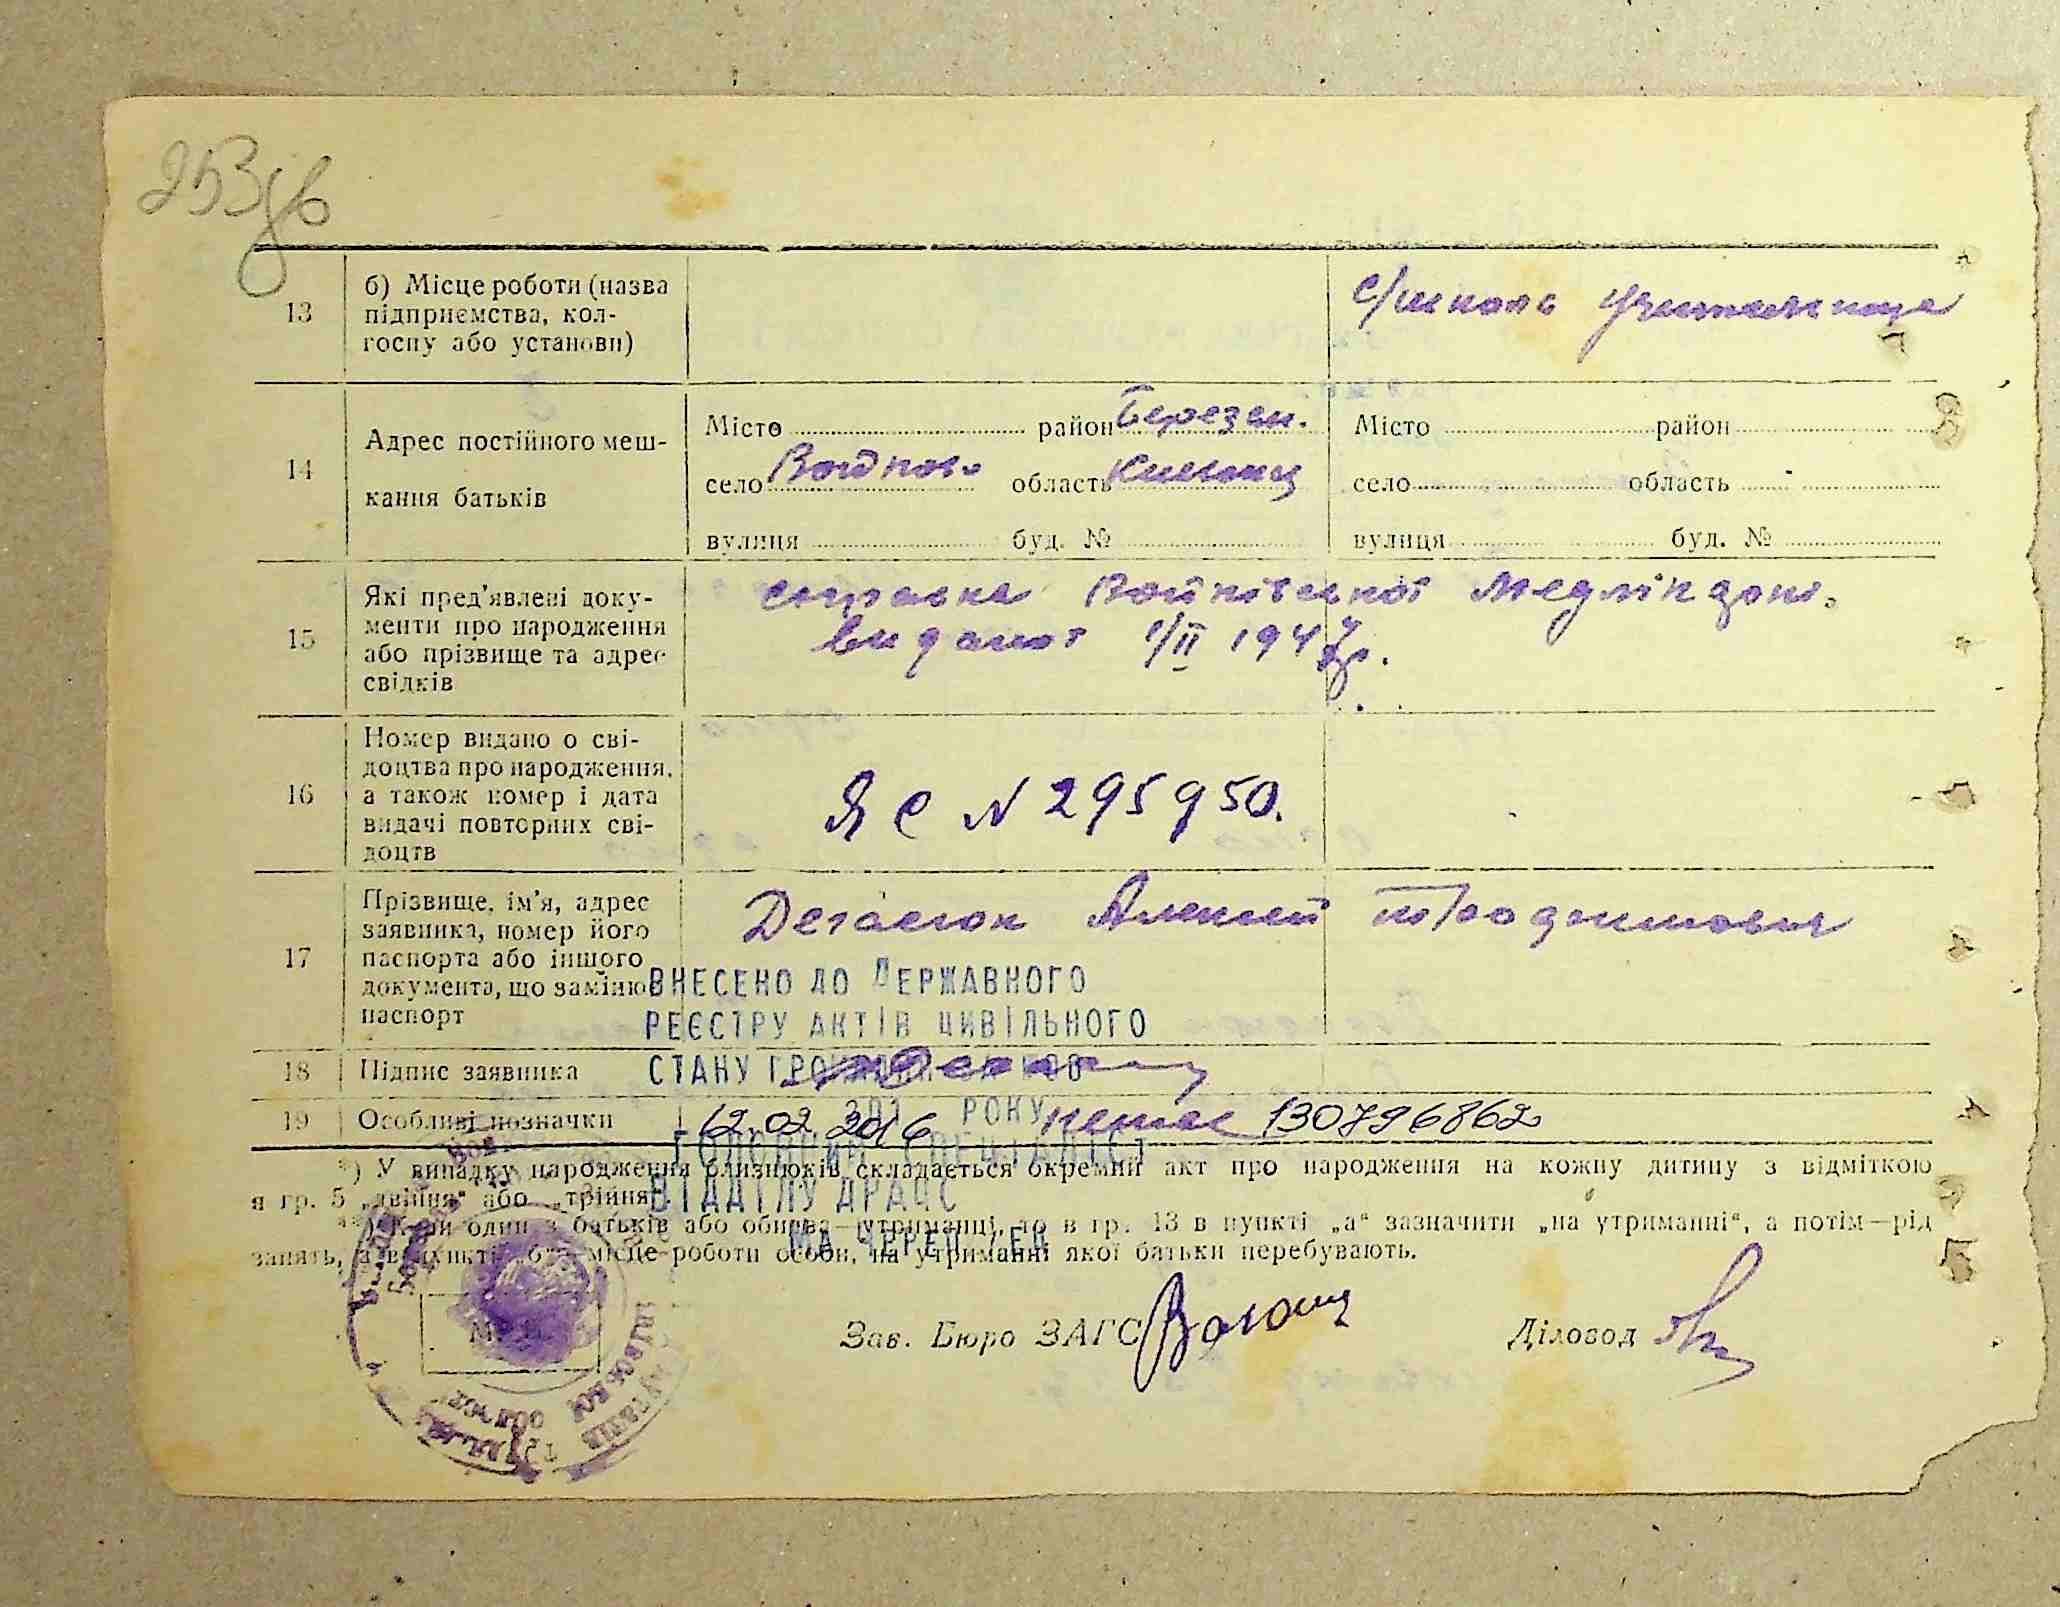 253зв
13
б) Місце роботи (назва
підприємства, кол-
госпу або установи)
с/школа учителниця
14
Адрес постійного меш-
кання батьків
Місто район Березан.
село область Київськ
вулиця буд. №
Місто район
село область
вулиця буд. №
15
Які пред'явлені доку-
менти про народження
або прізвище та адрес
свідків
справка Войківської
видана 1/II 1947р.
16
Номер видано о сві-
доцтва про народження,
а також номер і дата
видачі повторних сві-
доцтв
ЯС N 295950.
17
Прізвище, ім'я, адрес
заявника, номер його
паспорта або іншого
документа, що заміню
паспорт
Алексей
ВНЕСЕНО ДО ДЕРЖАВНОГО
РЕЄСТРУ АКТІВ ЦИВІЛЬНОГО
СТАНУ ГРОМАДЯН
18
Підпис заявника
19
Особливі позначки
12.02.2016 130796862
201 РОКУ
ГОЛОВНИЙ СПЕЦІАЛІСТ
*) У випадку народження близнюків складається окремий акт про народження на кожну дитину з відміткою
в гр. 5 „двійня“ або „трійня“.
ВІДДІЛУ ДРАЦС
**) Коли один з батьків або обидва—утриманці, то в гр. 13 в пункті „а“ зазначити „на утриманні“, а потім—рід
занять, а в пункті „б“—місце роботи особи, на утриманні якої батьки перебувають.
М. П.
Зав. Бюро ЗАГС
Діловод